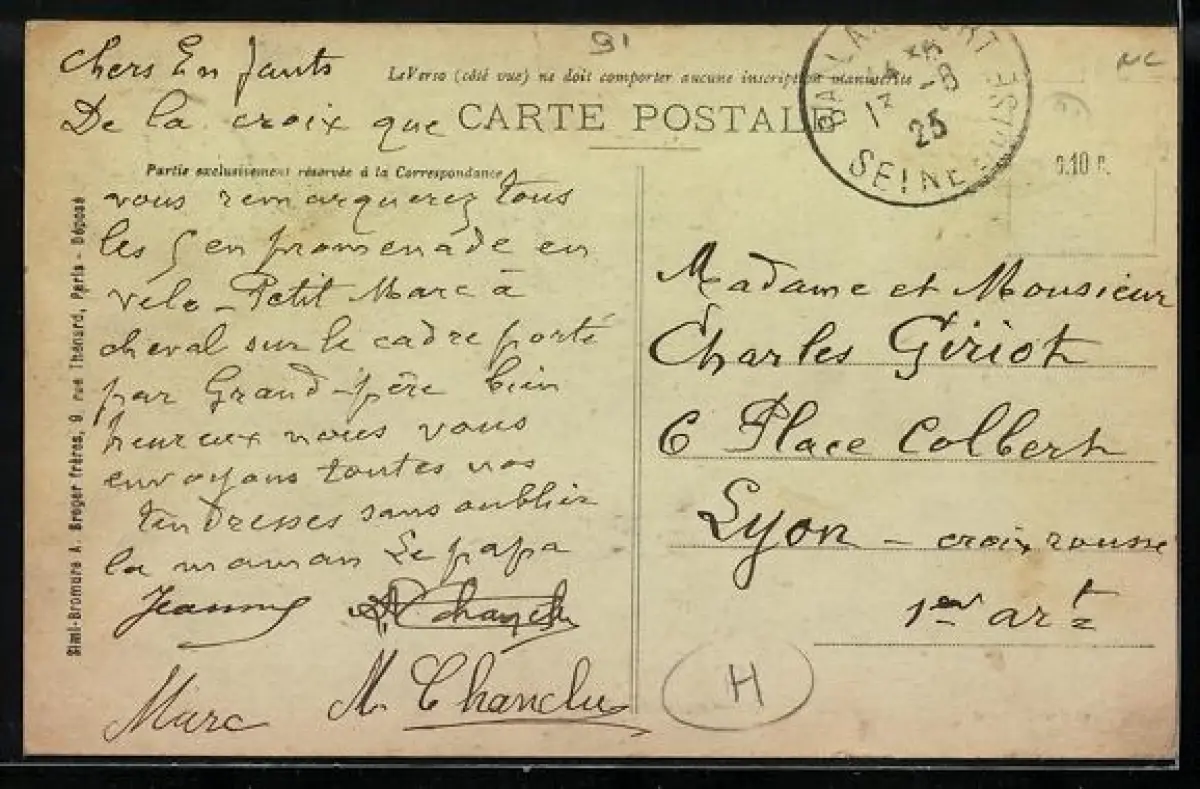 91
NC
Chers Enfants
Le Verso (côté vue) ne doit comporter aucune inscription manuscrite
De la croix que
CARTE POSTALE
BALLANCOURT
12 -8
25
SEINE-ET-OISE
0.10 c.
Partie exclusivement réservée à la Correspondance
vous remarquerez tous
les 5 en promenade en
vélo - Petit Marc à
cheval sur le cadre porté
par Grand-père bien
heureux nous vous
envoyons toutes nos
tendresses sans oublier
la maman Le papa
Jeanne
Marc M. Chanclu
Simi-Bromure A. Breger frères, 9 rue Thénard, Paris - Déposé
Madame et Monsieur
Charles Giriot
6 Place Colbert
Lyon - croix rousse
1er art
H